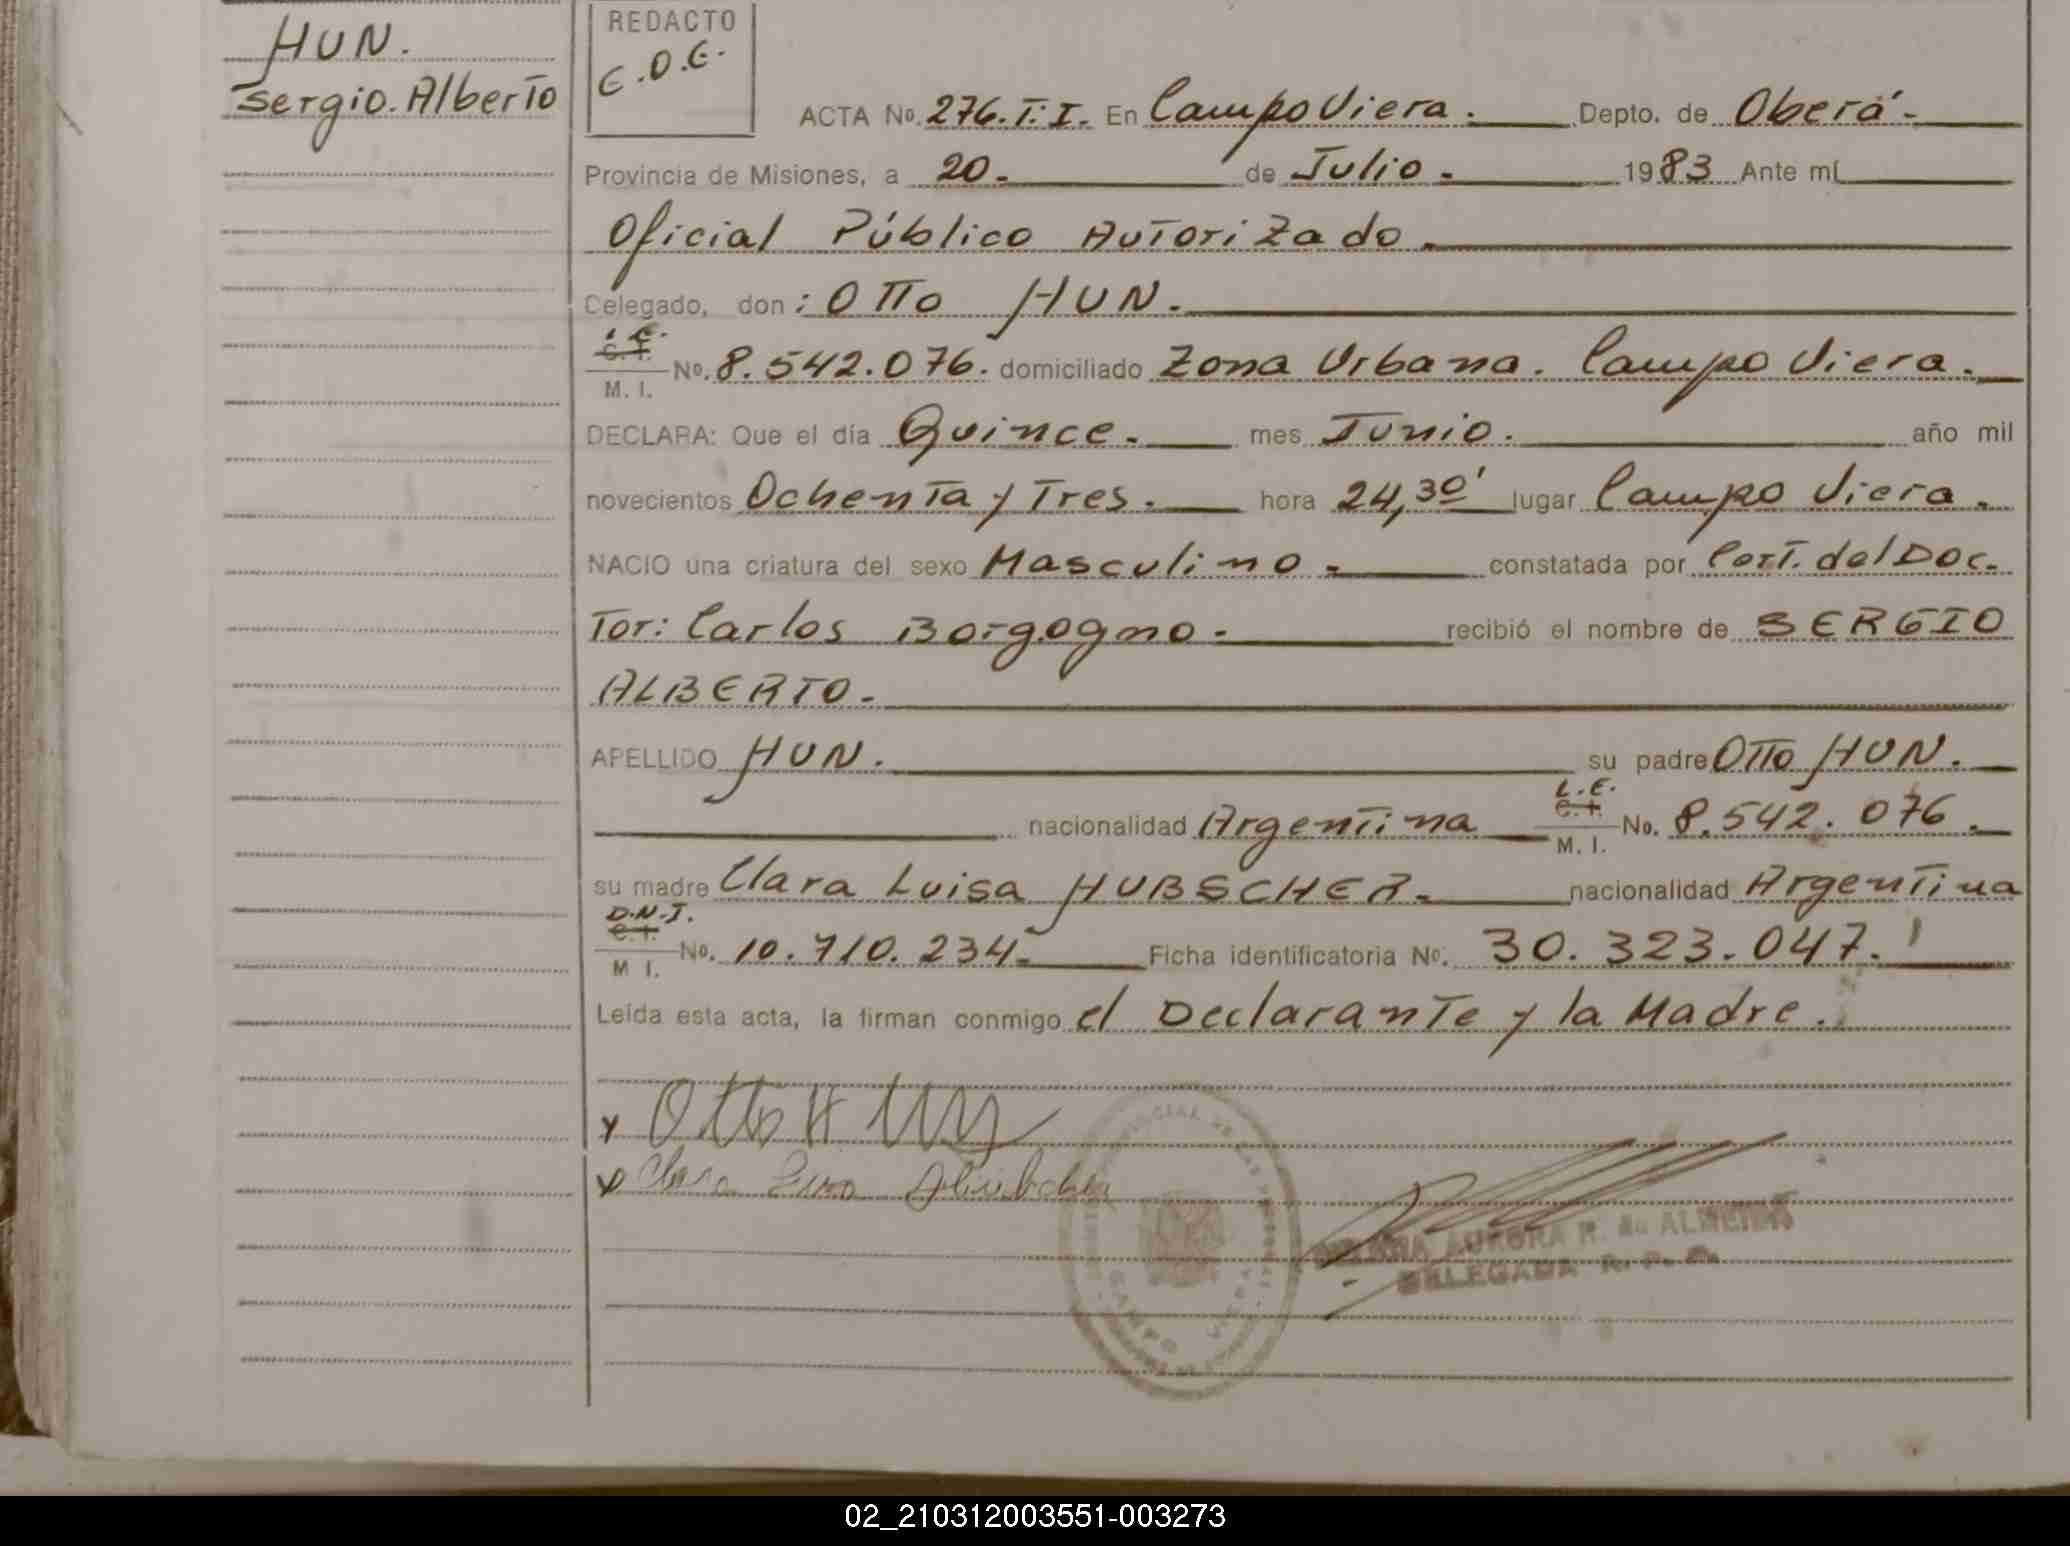 HUN.
Sergio.Alberto
REDACTO
E.D.E.
ACTA No. 276.T:I. En Campo Viera. Depto. de Oberá.-
Provincia de Misiones, a 20.- de Julio.- 1983 Ante mí
Oficial Público Autorizado.-
Celegado, don: Otto HUN.-
L.E.
C.I.
M. I.
No. 8.542.076. domiciliado Zona Urbana. Campo Viera.-
DECLARA: Que el día Quince.- mes Junio.- año mil
novecientos Ochenta y Tres.- hora 24,30' lugar Campo Viera.-
NACIO una criatura del sexo Masculino.- constatada por Cert. del Doc-
Tor: Carlos Borgogno.- recibió el nombre de SERGIO
ALBERTO.-
APELLIDO HUN.- su padre Otto HUN.-
nacionalidad Argentina L.E. C.I. M. I. No. 8.542.076.-
su madre Clara Luisa HUBSCHER.- nacionalidad Argentina
D.N.I.
C.I.
M I.
No. 10.710.234.- Ficha identificatoria No. 30.323.047.-
Leída esta acta, la firman conmigo el Declarante y la Madre.
x Otto H
x Clara
CAMPO VIERA
AURORA R. de ALMEIDA
DELEGADA R. P.
02_210312003551-003273